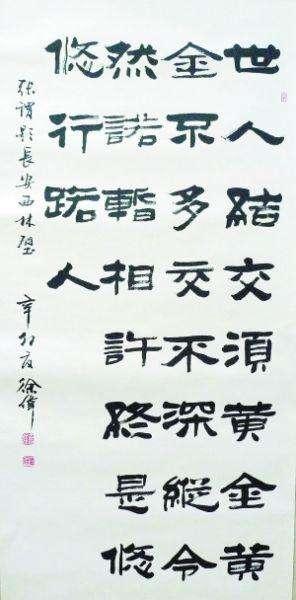 世人結交須黄金黄
金不多交不深縱令
然諾暫相許終是悠
悠行路人
張謂題長安西林壁
辛卯夏徐偉